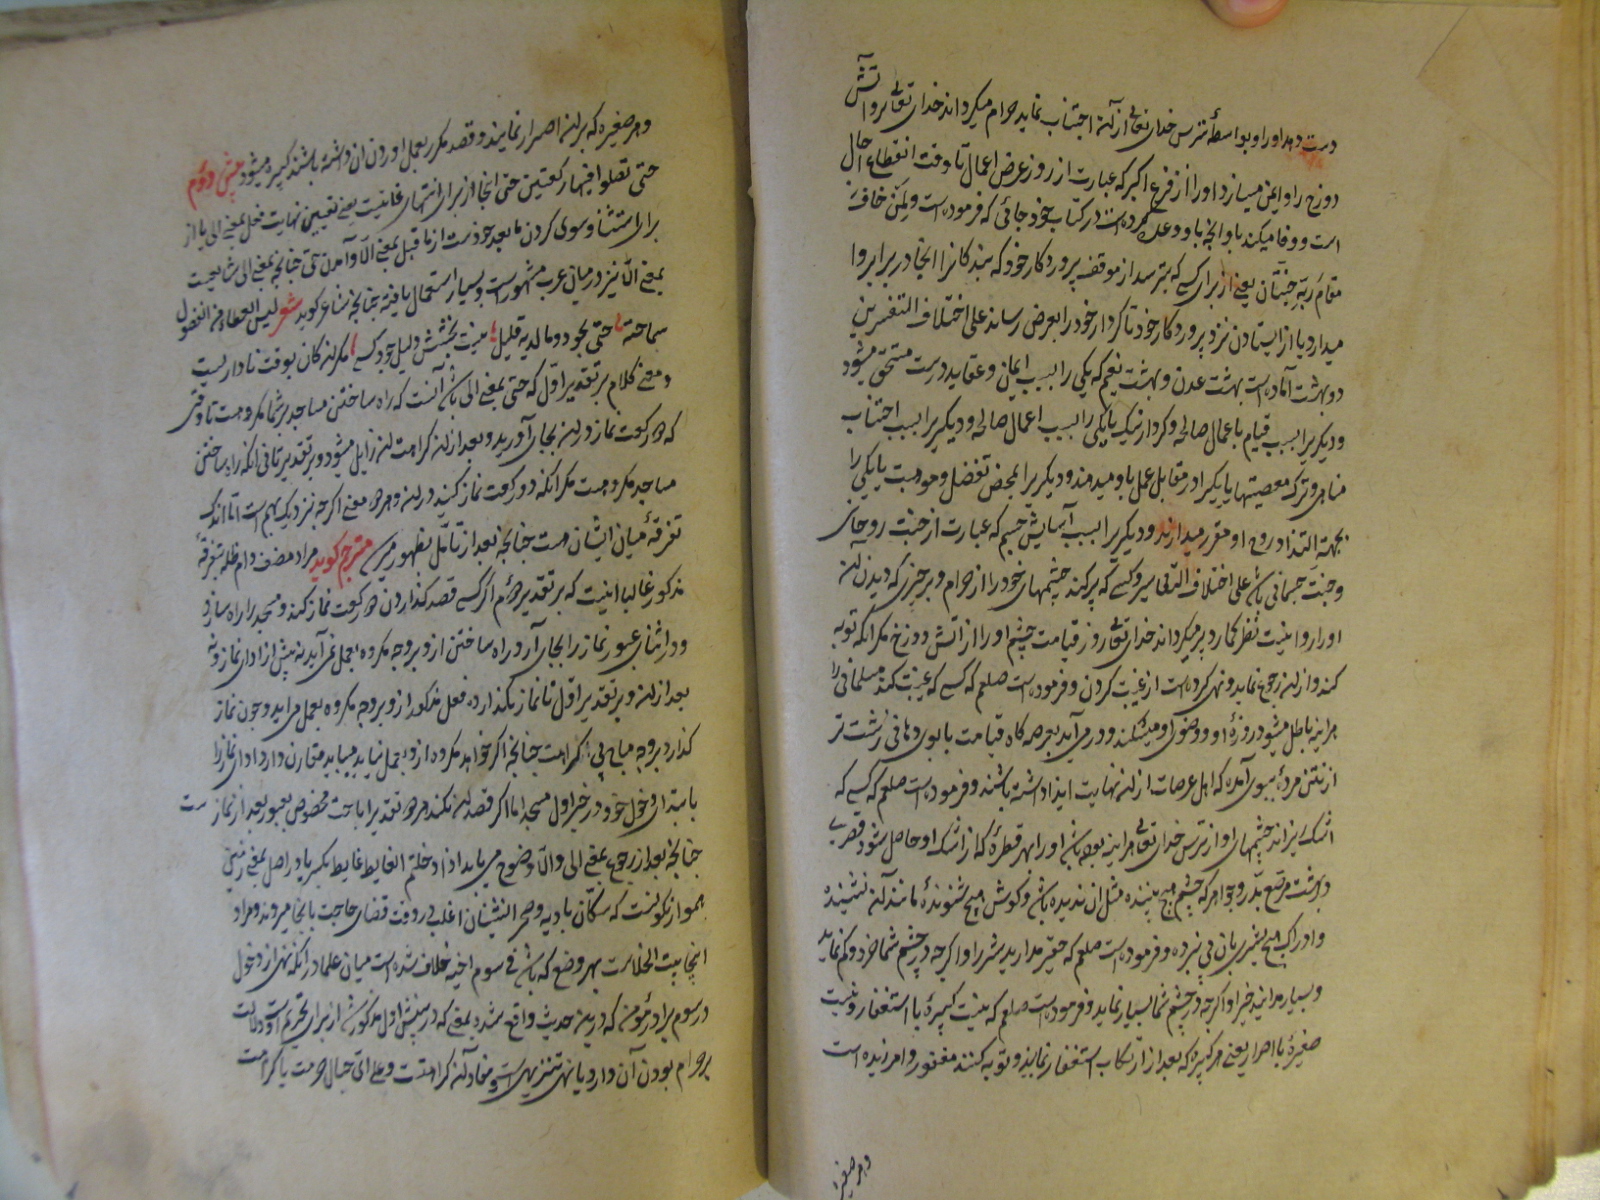 دست دهد او را و بواسطهٔ ترس خدای تعالی از آن اجتناب نماید حرام میکرداند خدای تعالی برو آتش
دوزخ را و ایمن میسازد او را از فزع اکبر که عبارت از روز عرض اعمال تا وقت انقطاع احال
است و وفا میکند با و انچه با و وعده کرده است در کتاب خود جائی که فرموده است و لمن خاف
مقام ربه جنتان یعنی از برای کسی که بترسد از موقف پروردکار خود که بندکانرا انجا در برابر وا
میدارد یا از ایستادن نزد پروردکار خود تا کردار خود را بعرض رساند علی اختلاف التفسیرین
دو بهشت آماده است بهشت عدن و بهشت نعیم که یکی را بسبب ایمان و عقاید درست مستحق میشود
و دیکریرا بسبب قیام با عمال صالحه و کردار نیک یا یکی را بسبب اعمال صالحه و دیکریرا بسبب اجتناب
مناهی و ترک معصیتها یا یکیرا در مقابل عمل باو میدهند و دیکریرا بمحض تفضل و موهبت یا یکی را
بجهة التذاذ روح او مقرر میدارند و دیکریرا بسبب آسایش جسم که عبارت از جنت روحانی
و جنت جسمانی باشد علی اختلاف التفاسیر و کسی که پر کند چشمهای خود را از حرام و بر چیزی که دیدن آن
او را روا نیست نظر کمارد پر میکرداند خدای تعالی روز قیامت چشم او را از آتش دوزخ مکر آنکه توبه
کند و از آن رجوع نماید و نهی کرده است از غیبت کردن و فرموده است صلعم که کسی که غیبت کند مسلمانی را
هر اینه باطل میشود روزهٔ او و وضوی او میشکند و در می آید بعرصه کاه قیامت با بوی دهانی زشت تر
از نتن مرده ببوی آمده که اهل عرصات از آن نهایت ایذا داشته باشند و فرموده است صلعم که کسی که
اشک ریزاند چشمهای او از ترس خدای تعالی هر اینه بوده باشد او را بهر قطرهٔ که از اشک او حاصل شود قصری
در بهشت مرصع بدر و جواهر که چشم هیچ بیننده مثل ان ندیده باشد و کوش هیچ شنوندهٔ مانند آن نشنیده
و ادراک هیچ بشری بآن پی نبرده و فرموده است صلعم که حقیر مدارید شر را و اکرچه در چشم شما خرد و کم نماید
و بسیار مدانید خیر و اکرچه در چشم شما بسیار نماید و فرموده است صلعم که نیست کبیرهٔ با استغفار و نیست
صغیرهٔ با اصرار یعنی هر کبیره که بعد از ارتکاب استغفار نمایند و توبه کنند مغفور و امرزیده است
و هر صغیره
و هر صغیره که بر آن اصرار نمایند و قصد مکرر بعمل اوردن ان داشته باشند کبیره میشود متن دوم
حتی تصلوا فیها رکعتین حتی انجا از برای انتهای غایت یعنی تعیین نهایت فعل بمعنی الی یا از
برای استثنا و سوی کردن ما بعد خودست از ما قبل بمعنی الا و آمدن حتی چنانچه بمعنی الی شایعست
بمعنی الا نیز در میان عرب مشهورست و بسیار استعمال یافته چنانچه شاعر کوید شعر لیس العطاء من الفضول
سماحة حتی تجود و ما لدیه قلیل نیست بخشش دلیل جود کسی مکر ان کان بوقت ناداریست
و معنی کلام بر تقدیر اول که حتی بمعنی الی باشد آنست که راه ساختن مساجد بر شما مکروهست تا وقتی
که دو رکعت نماز در آن بجای آورید و بعد از آن کراهت آن زایل میشود و بر تقدیر ثانی انکه راه ساختن
مساجد مکروهست مکر انکه دو رکعت نماز کنید در آن و هر دو معنی اکرچه نزدیک بهم است اما اندک
تفرقهٔ میان ایشان هست چنانچه بعد از تامل بظهور میرسد مترجم کوید مراد مصنف دام ظله بتفرقهٔ
مذکور غالبا اینست که بر تقدیر دوم اکر کسی قصد کذاردن دو رکعت نماز کند و مسجد را راه سازد
و در اثنای عبور نماز را بجای آرد راه ساختن ازو بر وجه مکروه بعمل نمی آید نه پیش از ادای نماز و نه
بعد از آن و بر تقدیر اول تا نماز نکذارد فعل مذکور ازو بر وجه مکروه بعمل می اید و چون نماز
کذارد بر وجه مباح پی کراهت چنانچه اکر خواهد مکروه ازو بعمل نیاید میباید مقارن دارد ادای نماز را
با بتدای دخول خود در خیر اول مسجد اما اکر قصد آن نکند بر هر دو تقدیر اباحت مخصوص بعبور بعد از نماز ست
چنانچه بعد از رجوع بمعنی الی و الا وضوح می یابد اذا دخلتم الغایط غایط بکسر یا در اصل بمعنی زمینی
هموار نکونست که سکان بادیه و صحرا نشینان اغلب در وقت قضای حاجت بانجا میروند و مراد
اینجا بیت الخلاست بهر وضع که باشد فی سوم اخیه خلاف شده است میان علما در انکه نهی از دخول
در سوم برادر مؤمن که درین حدیث واقع شده بمعنی که در متن اول مذکور شد از برای تحریم است و دلالت
بر حرام بودن آن دارد یا نهی تنزیهی است و مفاد آن کراهتست و علی ای حال حرمت یا کراهت